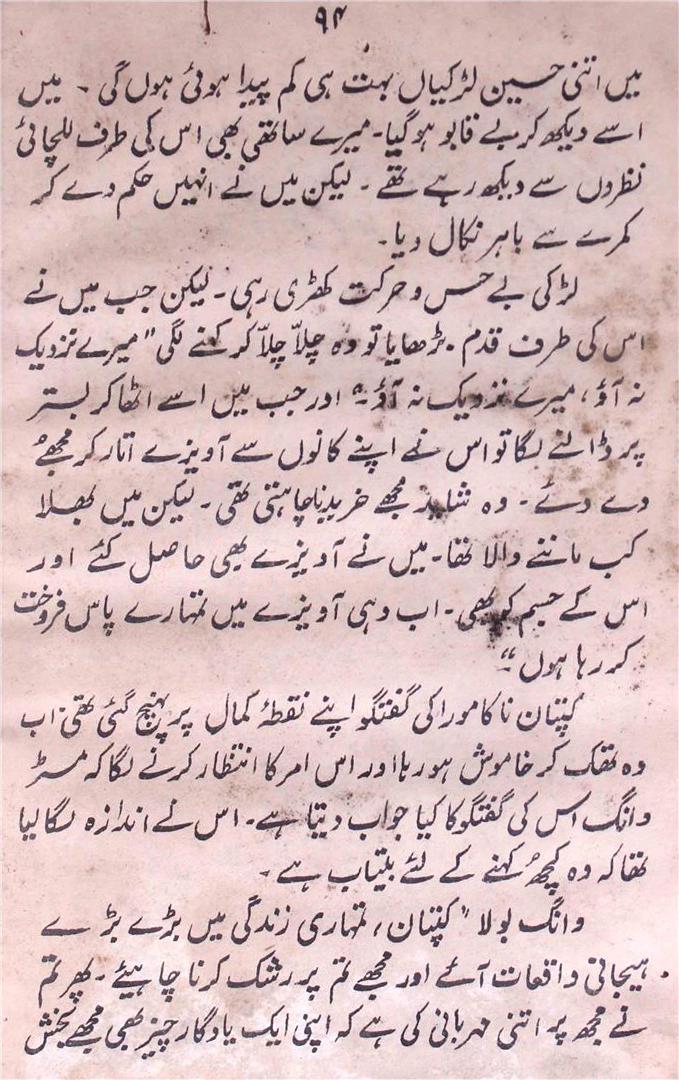 ۹۴
میں اتنی حسین لڑکیاں بہت ہی کم پیدا ہوئی ہوں گی ۔ میں
اسے دیکھ کر بے قابو ہو گیا۔ میرے ساتھی بھی اس کی طرف للچائی
نظروں سے دیکھ رہے تھے ۔ لیکن میں نے انہیں حکم دے کر
کمرے سے باہر نکال دیا۔
لڑکی بے حس و حرکت کھڑی رہی۔ لیکن جب میں نے
اس کی طرف قدم بڑھایا تو وہ چلاّ چلاّ کر کہنے لگی "میرے نزدیک
نہ آؤ، میرے نزدیک نہ آؤ۔" اور جب میں اسے اٹھا کر بستر
پر ڈالنے لگا تو اس نے اپنے کانوں سے آویزے اتار کر مجھے
دے دئے۔ وہ شاید مجھے خریدنا چاہتی تھی۔ لیکن میں بھلا
کب ماننے والا تھا۔ میں نے آویزے بھی حاصل کئے اور
اس کے جسم کو بھی۔ اب وہی آویزے میں تمہارے پاس فروخت
کر رہا ہوں"
کپتان ناکامورا کی گفتگو اپنے نقطۂ کمال پر پہنچ گئی تھی۔ اب
وہ تھک کر خاموش ہو رہا اور اس امر کا انتظار کرنے لگا کہ مسٹر
وانگ اس کی گفتگو کا کیا جواب دیتا ہے۔ اس نے اندازہ لگا لیا
تھا کہ وہ کچھ کہنے کے لئے بیتاب ہے ۔
وانگ بولا "کپتان، تمہاری زندگی میں بڑے بڑے
ہیجانی واقعات آئے اور مجھے تم پر رشک کرنا چاہیئے۔ پھر تم
نے مجھ پر اتنی مہربانی کی ہے کہ اپنی ایک یادگار چیز بھی مجھے بخش